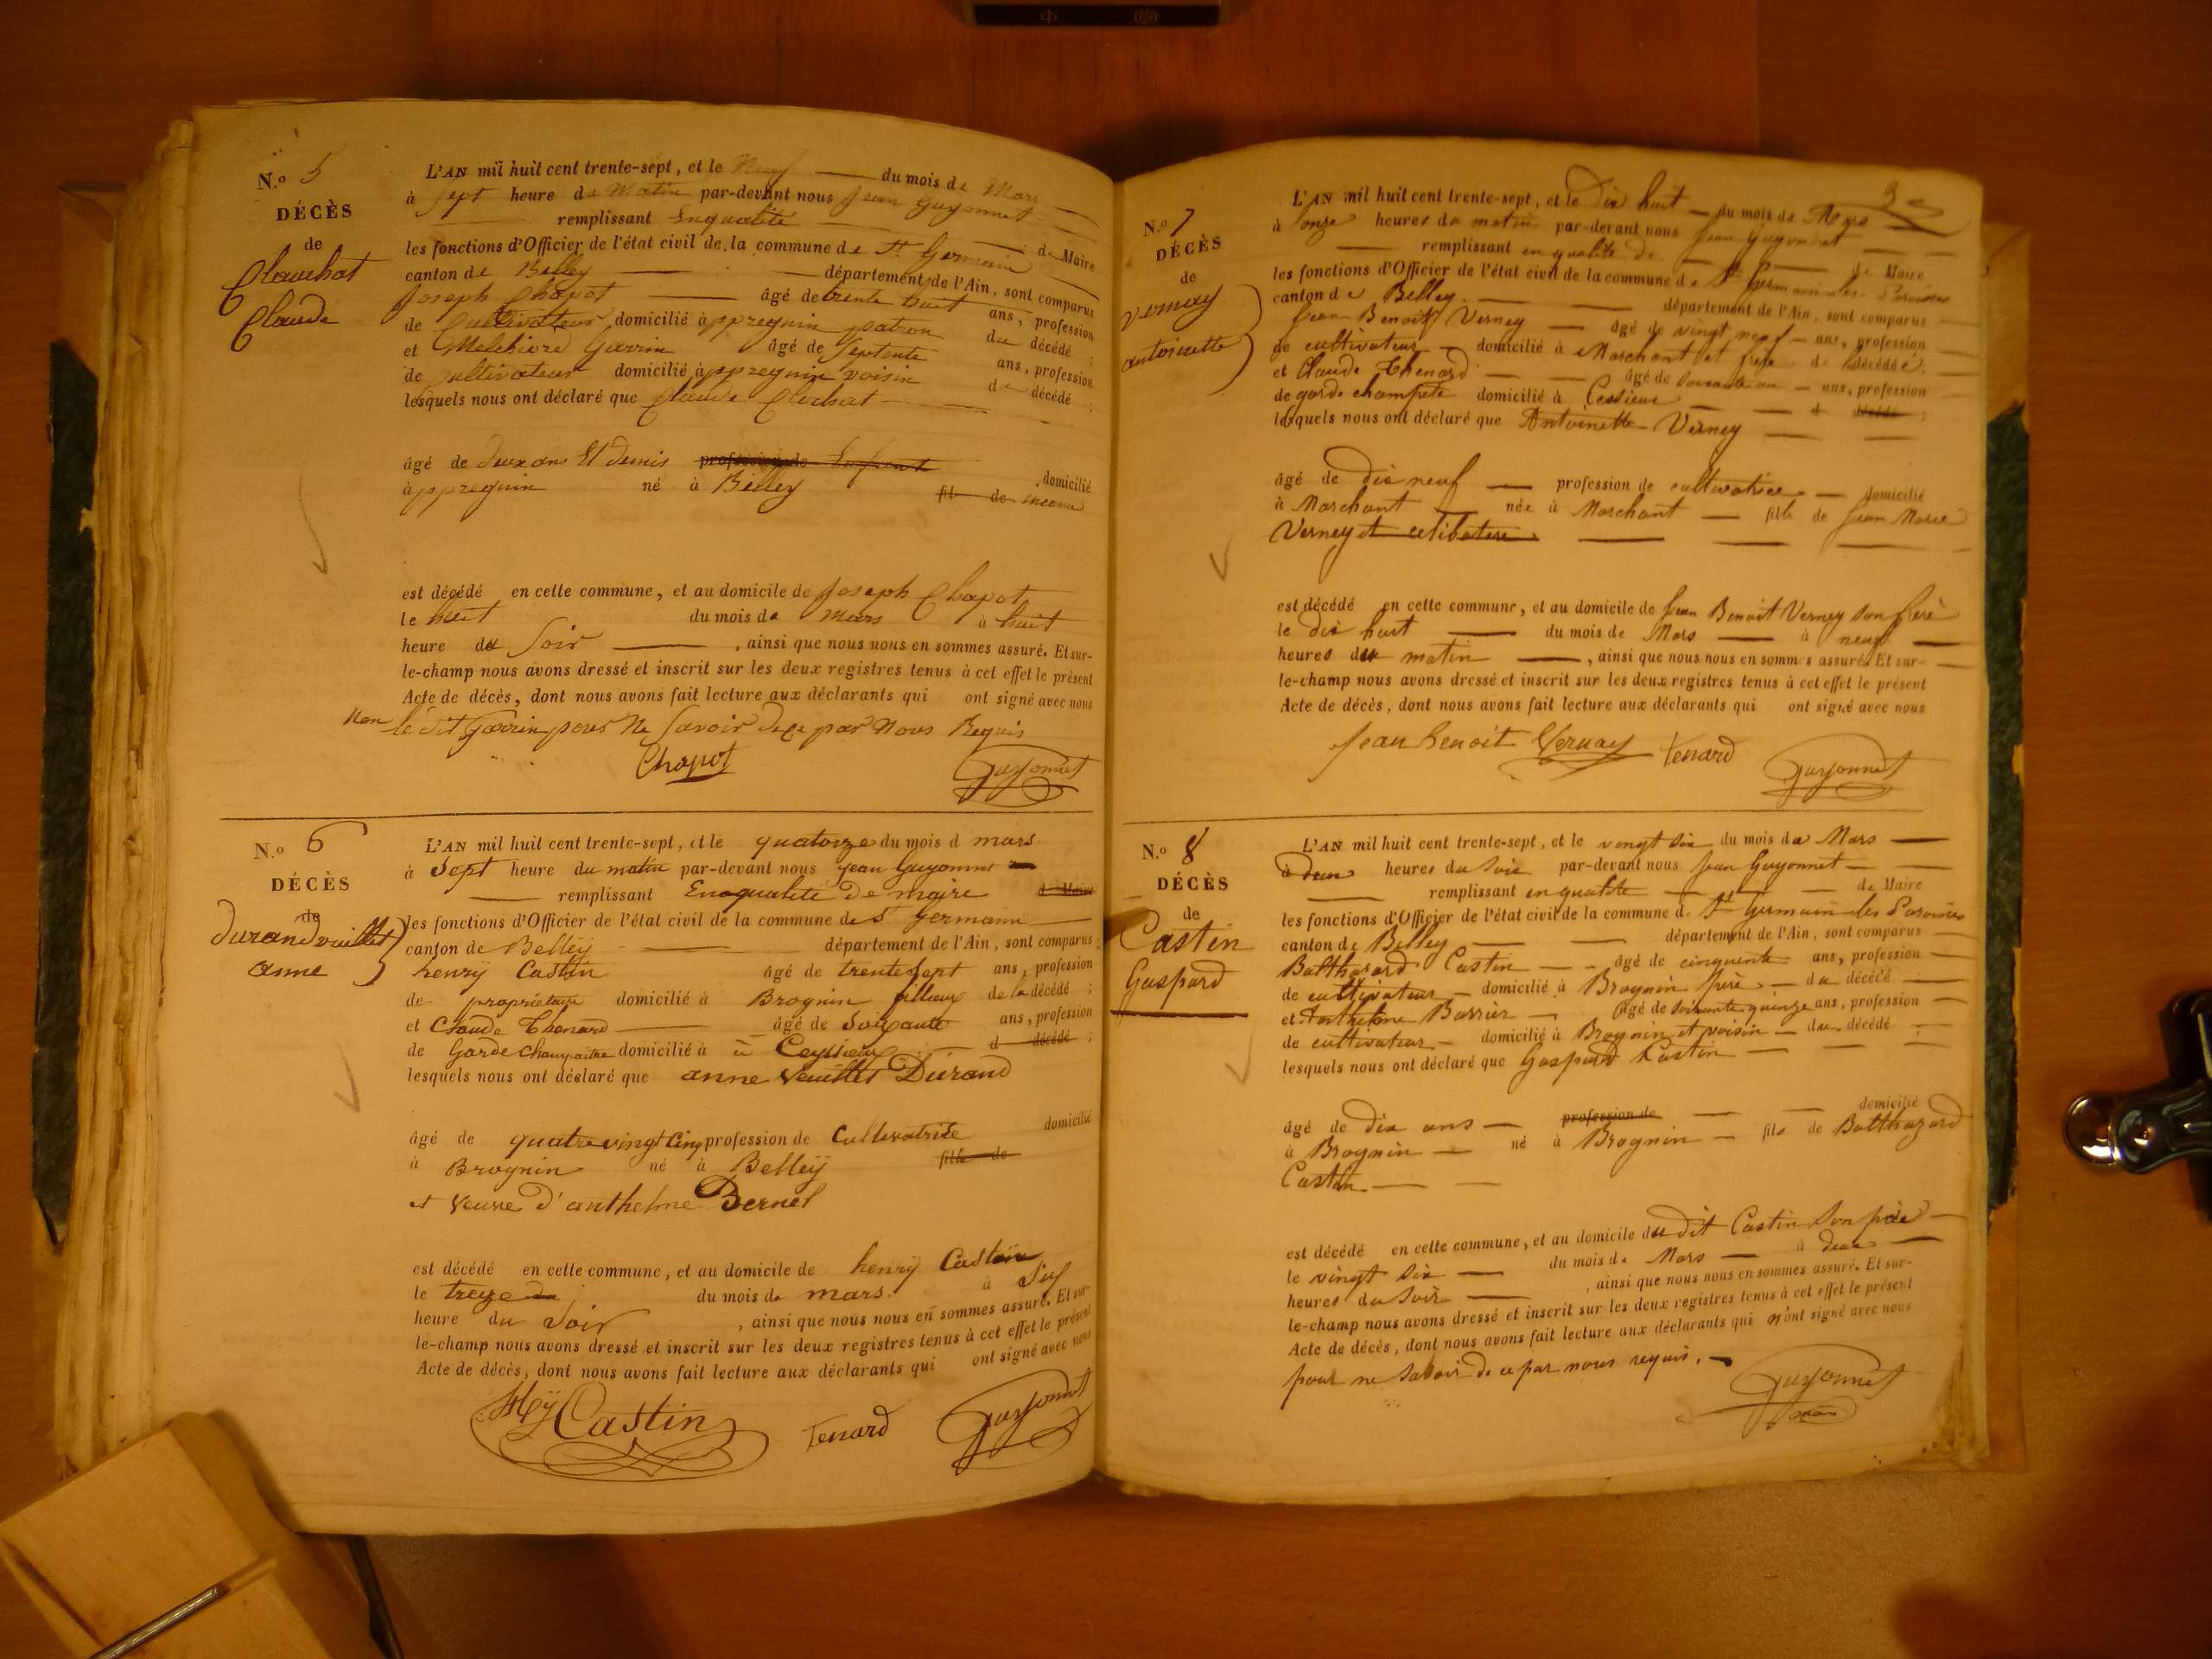 N.o 5
DÉCÈS
de
Clauchat
Claude
L'AN mil huit cent trente-sept, et le Neuf du mois de Mars
à sept heure du Matin par-devant nous Jean Guyonnet
remplissant Enqualité de Maire
les fonctions d'Officier de l'état civil de la commune de St Germain
canton de Belley département de l'Ain, sont comparus
Joseph Chapot âgé de trente huit ans, profession
de Cultivateur domicilié à ppregnin patron du décédé ;
et Melchiord Garrin âgé de Septente ans, profession
de cultivateur domicilié à ppregnin voisin du décédé ;
lesquels nous ont déclaré que Claude
âgé de deux ans Et demis profession de Enfant domicilié
à ppregnin né à Belley fils de inconu
est décédé en cette commune, et au domicile de Joseph Chapot
le huit du mois de mars à huit
heure du Soir , ainsi que nous nous en sommes assuré. Et sur-
le-champ nous avons dressé et inscrit sur les deux registres tenus à cet effet le présent
Acte de décès, dont nous avons fait lecture aux déclarants qui ont signé avec nous
Non le dit Garrin pour Ne Savoir dece par Nous Requis
Chapot Guyonnet
N.o 6
DÉCÈS
de
durand vuillet
anne
L'AN mil huit cent trente-sept, et le quatorze du mois d mars
à Sept heure du matin par-devant nous jean Guyonnet
remplissant Enqualité De maire d Maire
les fonctions d'Officier de l'état civil de la commune de St Germain
canton de Belleÿ département de l'Ain, sont comparus
henrÿ Castin âgé de trente Sept ans, profession
de propriétaire domicilié à Brognin de la décédé ;
et Claude Thenard âgé de Soixante ans, profession
de Garde Champaitre domicilié à à Ceyssieux d décédé ;
lesquels nous ont déclaré que anne Veuillet Durand
âgé de quatre vingt Cinq profession de Cultivatrise domicilié
à Brognin né à Belleÿ fille de
et Veuve d'anthelme Bernel
est décédé en cette commune, et au domicile de henrÿ Castin
le treize du mois de mars à Sis
heure du Soir , ainsi que nous nous en sommes assuré. Et sur-
le-champ nous avons dressé et inscrit sur les deux registres tenus à cet effet le présent
Acte de décès, dont nous avons fait lecture aux déclarants qui ont signé avec nous
Hÿ Castin Tenard Guyonnet
3
N.o 7
DÉCÈS
de
vernay
antoinette
L'AN mil huit cent trente-sept, et le Dix huit du mois de Mars
à onze heures du matin par-devant nous Jean Guyonnet
remplissant en qualité de de Maire
les fonctions d'Officier de l'état civil de la commune de St Germain les Paroisses
canton de Belley. département de l'Ain, sont comparus
Jean Benoit Verney âgé de vingt neuf ans, profession
de cultivateur domicilié à Marchant et frère de l décédée ;
et Claude Thenard âgé de soixante un ans, profession
de garde champête domicilié à Cessieux d décédé ;
lesquels nous ont déclaré que Antoinette Verney
âgé de dix neuf profession de cultivatrice domicilié
à Marchant née à Marchant fille de Jean Marie
Verney et celibatere
est décédé en cette commune, et au domicile de Jean Benoit Verney son frère
le dix huit du mois de Mars à neuf
heures du matin , ainsi que nous nous en sommes assuré. Et sur-
le-champ nous avons dressé et inscrit sur les deux registres tenus à cet effet le présent
Acte de décès, dont nous avons fait lecture aux déclarants qui ont signé avec nous
Jean benoit Vernay Tenard Guyonnet
N.o 8
DÉCÈS
de
Castin
Gaspard
L'AN mil huit cent trente-sept, et le vingt six du mois de Mars
à deux heures du Soir par-devant nous Jean Guyonnet
remplissant en qualité de Maire
les fonctions d'Officier de l'état civil de la commune d. St Germain les Paroisses
canton de Belley département de l'Ain, sont comparus
Balthazard Castin âgé de cinquente ans, profession
de cultivateur domicilié à Brognin père du décédé
et Anthelme Barrier âgé de soixante quinze ans, profession
de cultivateur domicilié à Brognin et voisin du décédé ;
lesquels nous ont déclaré que Gaspard Castin
âgé de dix ans profession de domicilié
à Brognin né à Brognin fils de Balthazard
Castin
est décédé en cette commune, et au domicile du dit Castin son père
le vingt six du mois de Mars à deux
heures du soir , ainsi que nous nous en sommes assuré. Et sur-
le-champ nous avons dressé et inscrit sur les deux registres tenus à cet effet le présent
Acte de décès, dont nous avons fait lecture aux déclarants qui n'ont signé avec nous
pour ne savoir de ce par nous requis.
Guyonnet